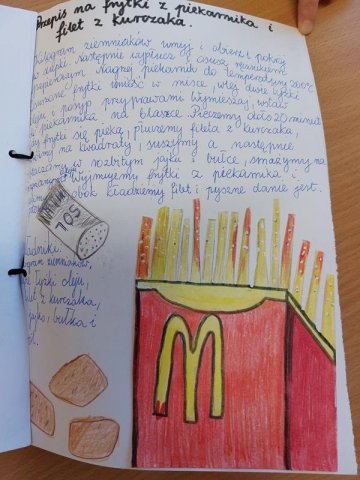 Przepis na frytki z piekarnika i
filet z kurczaka.
Kilogram ziemniaków umyj i obierz, pokrój
w słupki. Następnie wypłucz i osusz ręcznikiem
papierowym. Nagrzej piekarnik do temperatury 200°C
frytki umieść w misce, wlej dwie łyżki
oleju i posyp przyprawami. Wymieszaj, wstaw
do piekarnika na blaszce. Pieczemy około 20 minut
frytki się pieką, płuczemy fileta z kurczaka,
kroimy na kwadraty, suszymy a następnie
w rozbitym jajku i bułce, smażymy na
Wyjmujemy frytki z piekarnika i
obok kładziemy filet i pyszne danie jest.
SÓL
Składniki:
kilogram ziemniaków,
dwie łyżki oleju,
filet z kurczaka,
jajko, bułka i
sól.
M